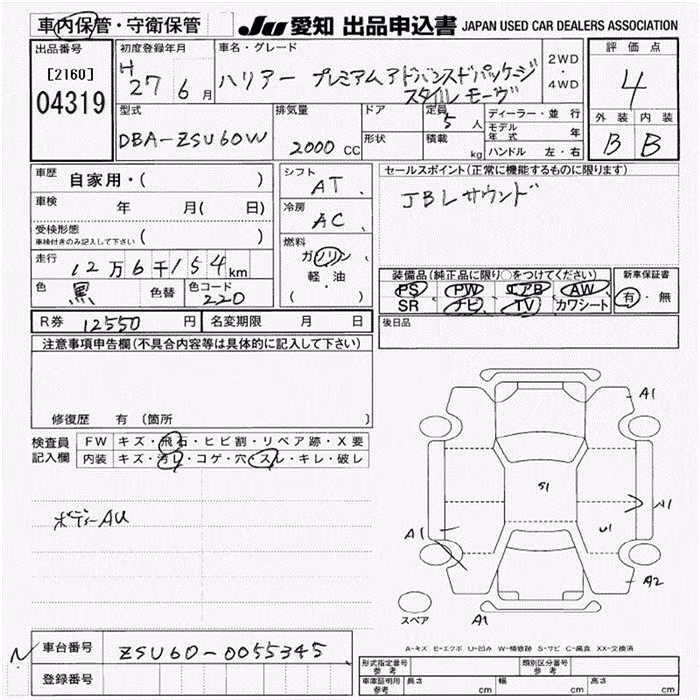 車内保管・守衛保管
JU 愛知 出品申込書 JAPAN USED CAR DEALERS ASSOCIATION
出品番号
[2160]
04319
初度登録年月
H 27 6月
車名・グレード
ハリアー プレミアムアドバンスドパッケージ
スタイルモーヴ
2WD
・
4WD
評価点
4
外装 内装
B B
型式
DBA-ZSU60W
排気量
2000 CC
ドア
形状
定員 5人
積載 kg
ディーラー・並行
モデル年式 年
ハンドル 左・右
車歴 自家用・( )
車検 年 月( 日)
受検形態
車検付きのみ記入して下さい ( )
走行 12万6千154km
色 黒 色替 色コード 220
シフト
AT
冷房
AC
燃料
ガソリン
軽・油
( )
セールスポイント(正常に機能するものに限ります)
JBLサウンド
装備品(純正品に限り○をつけてください)
PS PW エアB AW
SR ナビ TV カワシート
新車保証書
有・無
後日品
R券 12550円 名変期限 月 日
注意事項申告欄(不具合内容等は具体的に記入して下さい)
修復歴 有(箇所 )
検査員
記入欄
FW キズ・飛石・ヒビ割・リペア跡・X要
内装 キズ・汚レ・コゲ・穴・スレ・キレ・破レ
ボディーAU
A1
S1
U1
A1
A2
A1
スペア
A-キズ E-エクボ U-凹み W-補修跡 S-サビ C-腐食 XX-交換済
車台番号 ZSU60-0055345
登録番号
形式指定番号
参考
類別区分番号
参考
車庫証明用
参考
長さ cm 幅 cm 高さ cm